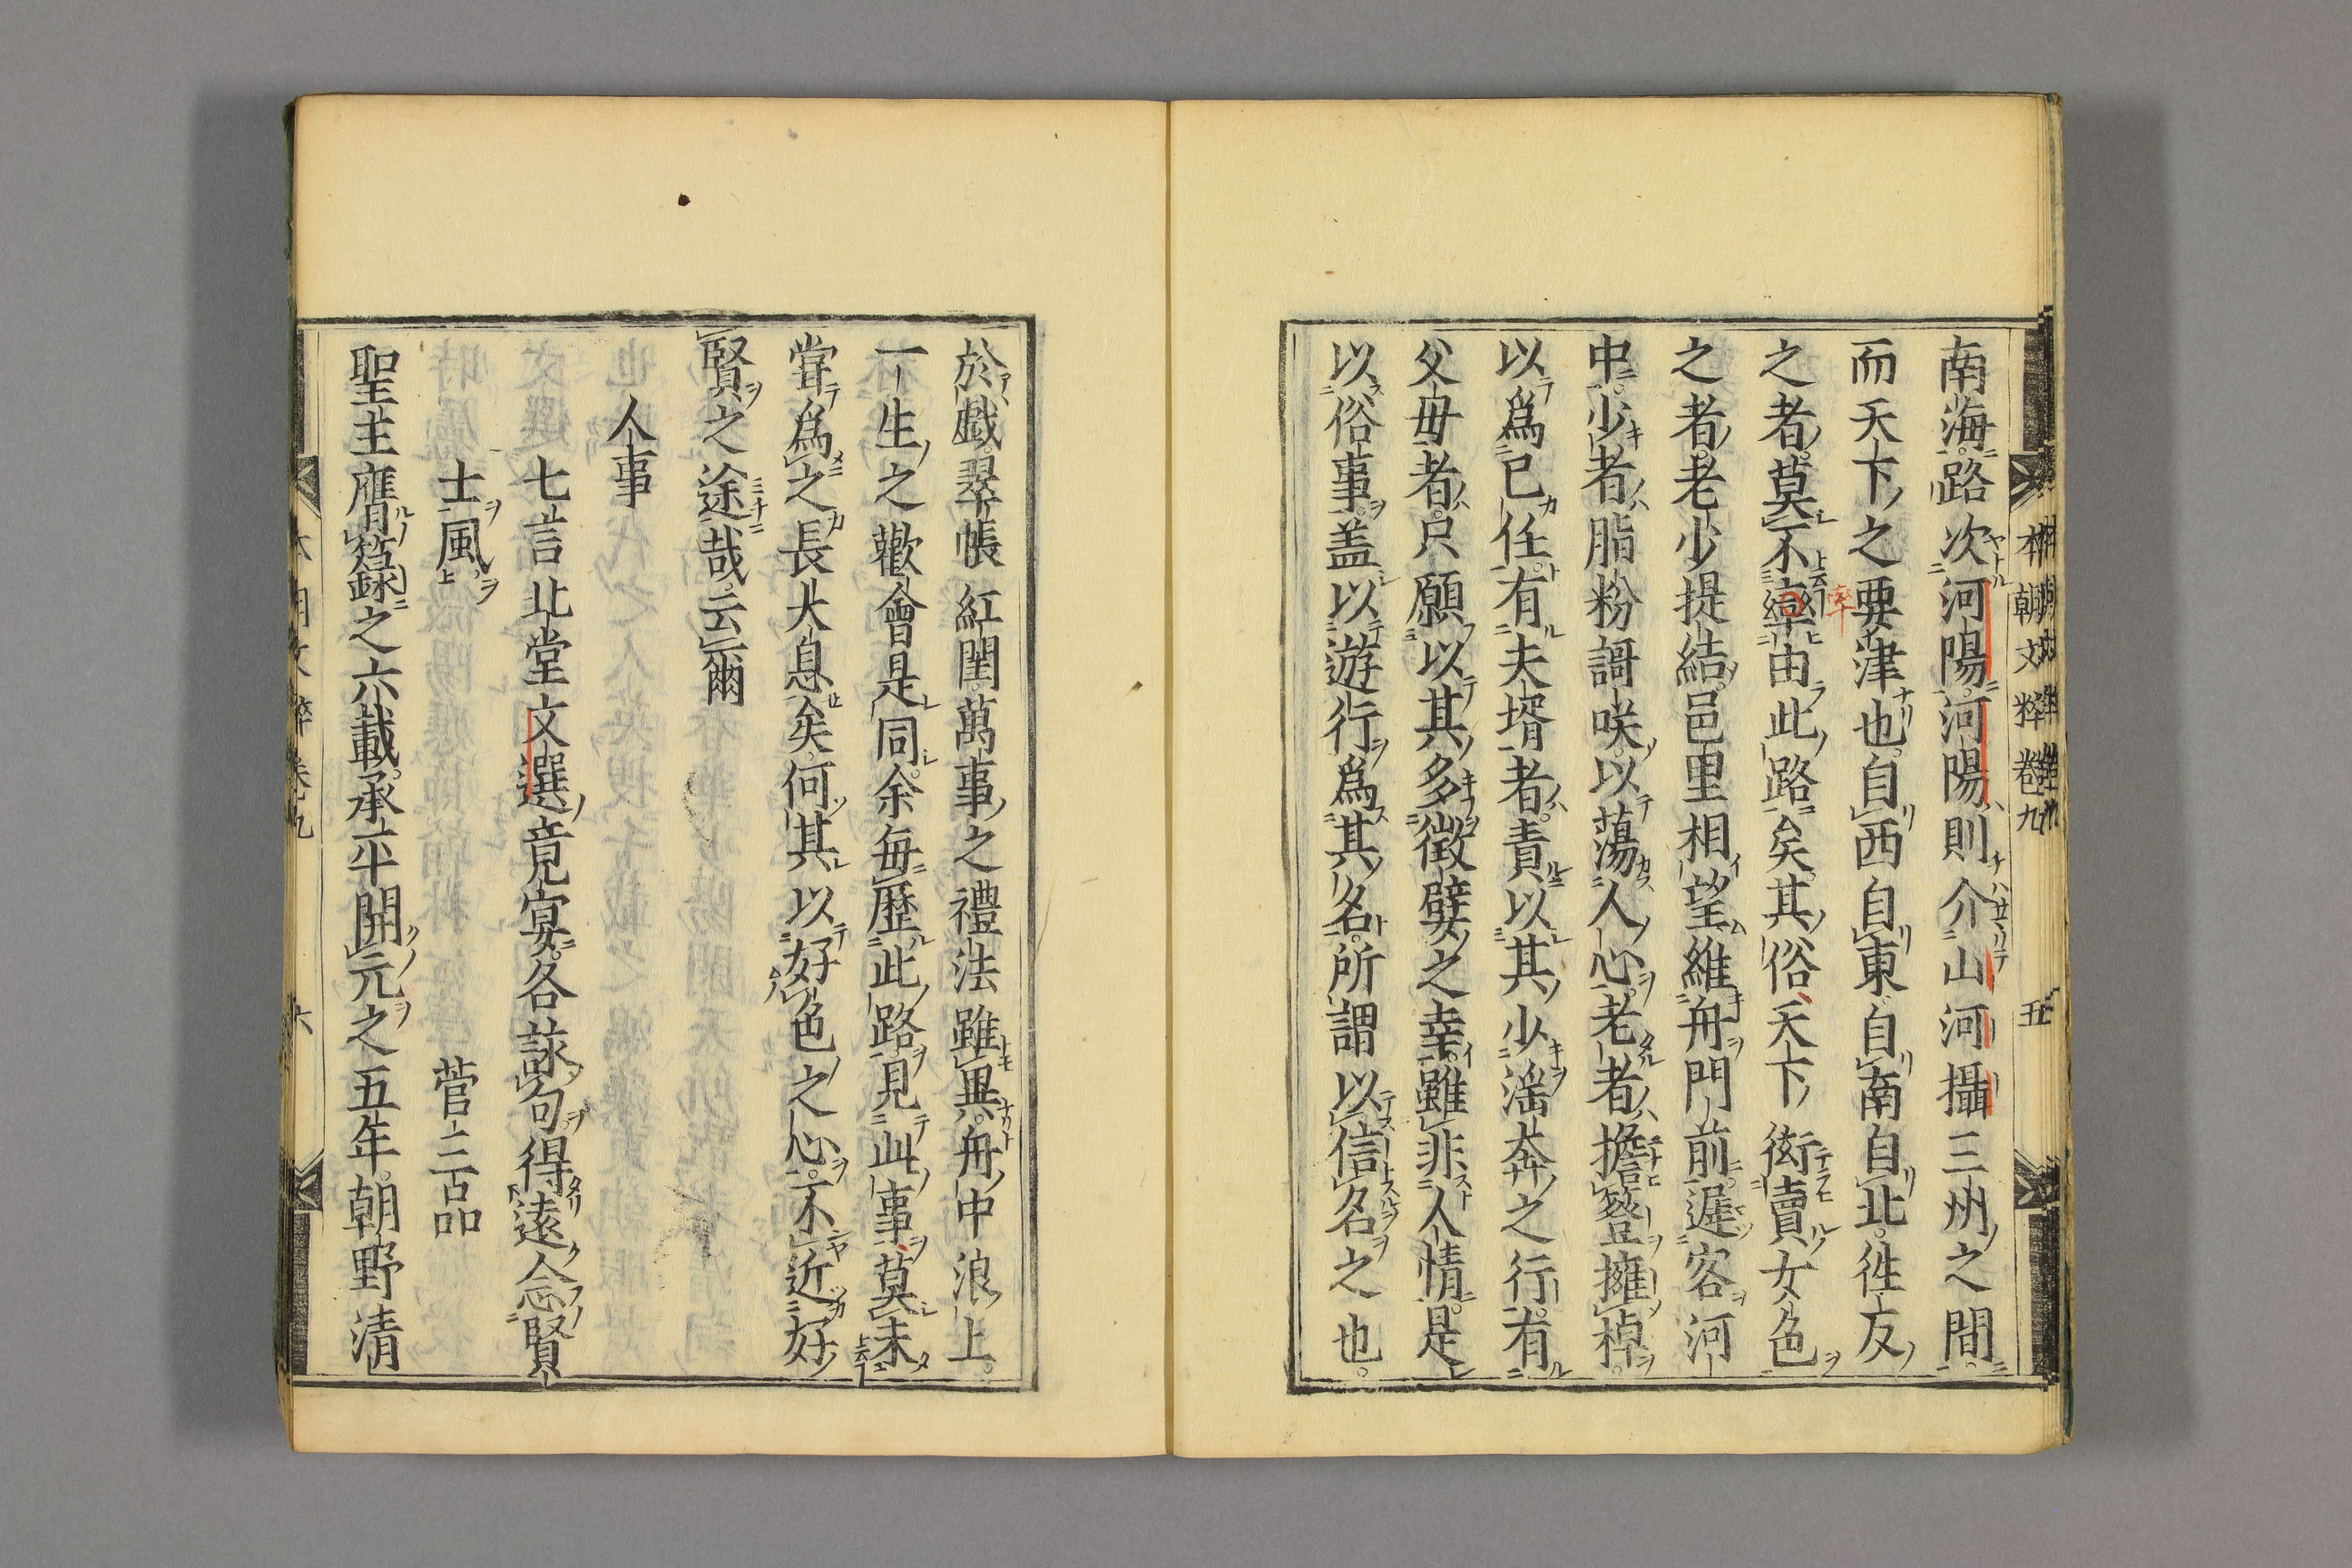 南海路次河陽河陽則介山河攝三州之間
而天下之要津也自西自東自南自北徃反
之者莫不率由此路矣其俗天下衒賣女色
之者老少提結邑里相望維舟門前遲客河
中少者脂粉謌咲以蕩人心老者擔簦擁棹
以爲己任有夫壻者責以其少淫奔之行有
父母者只願以其多徵嬖之幸雖非人情是
以俗事盖以遊行爲其名所謂以信名之也
本朝文粹卷九
五
於戲翠帳紅閨萬事之禮法雖異舟中浪上
一生之歡會是同余每歷此路見此事莫未
甞爲之長大息矣何其以好色之心不近好
賢之途哉云爾
人事
七言北堂文選竟宴各詠句得遠念賢
士風
菅三品
聖主膺籙之六載承平開元之五年朝野清
本朝文粹卷九
六